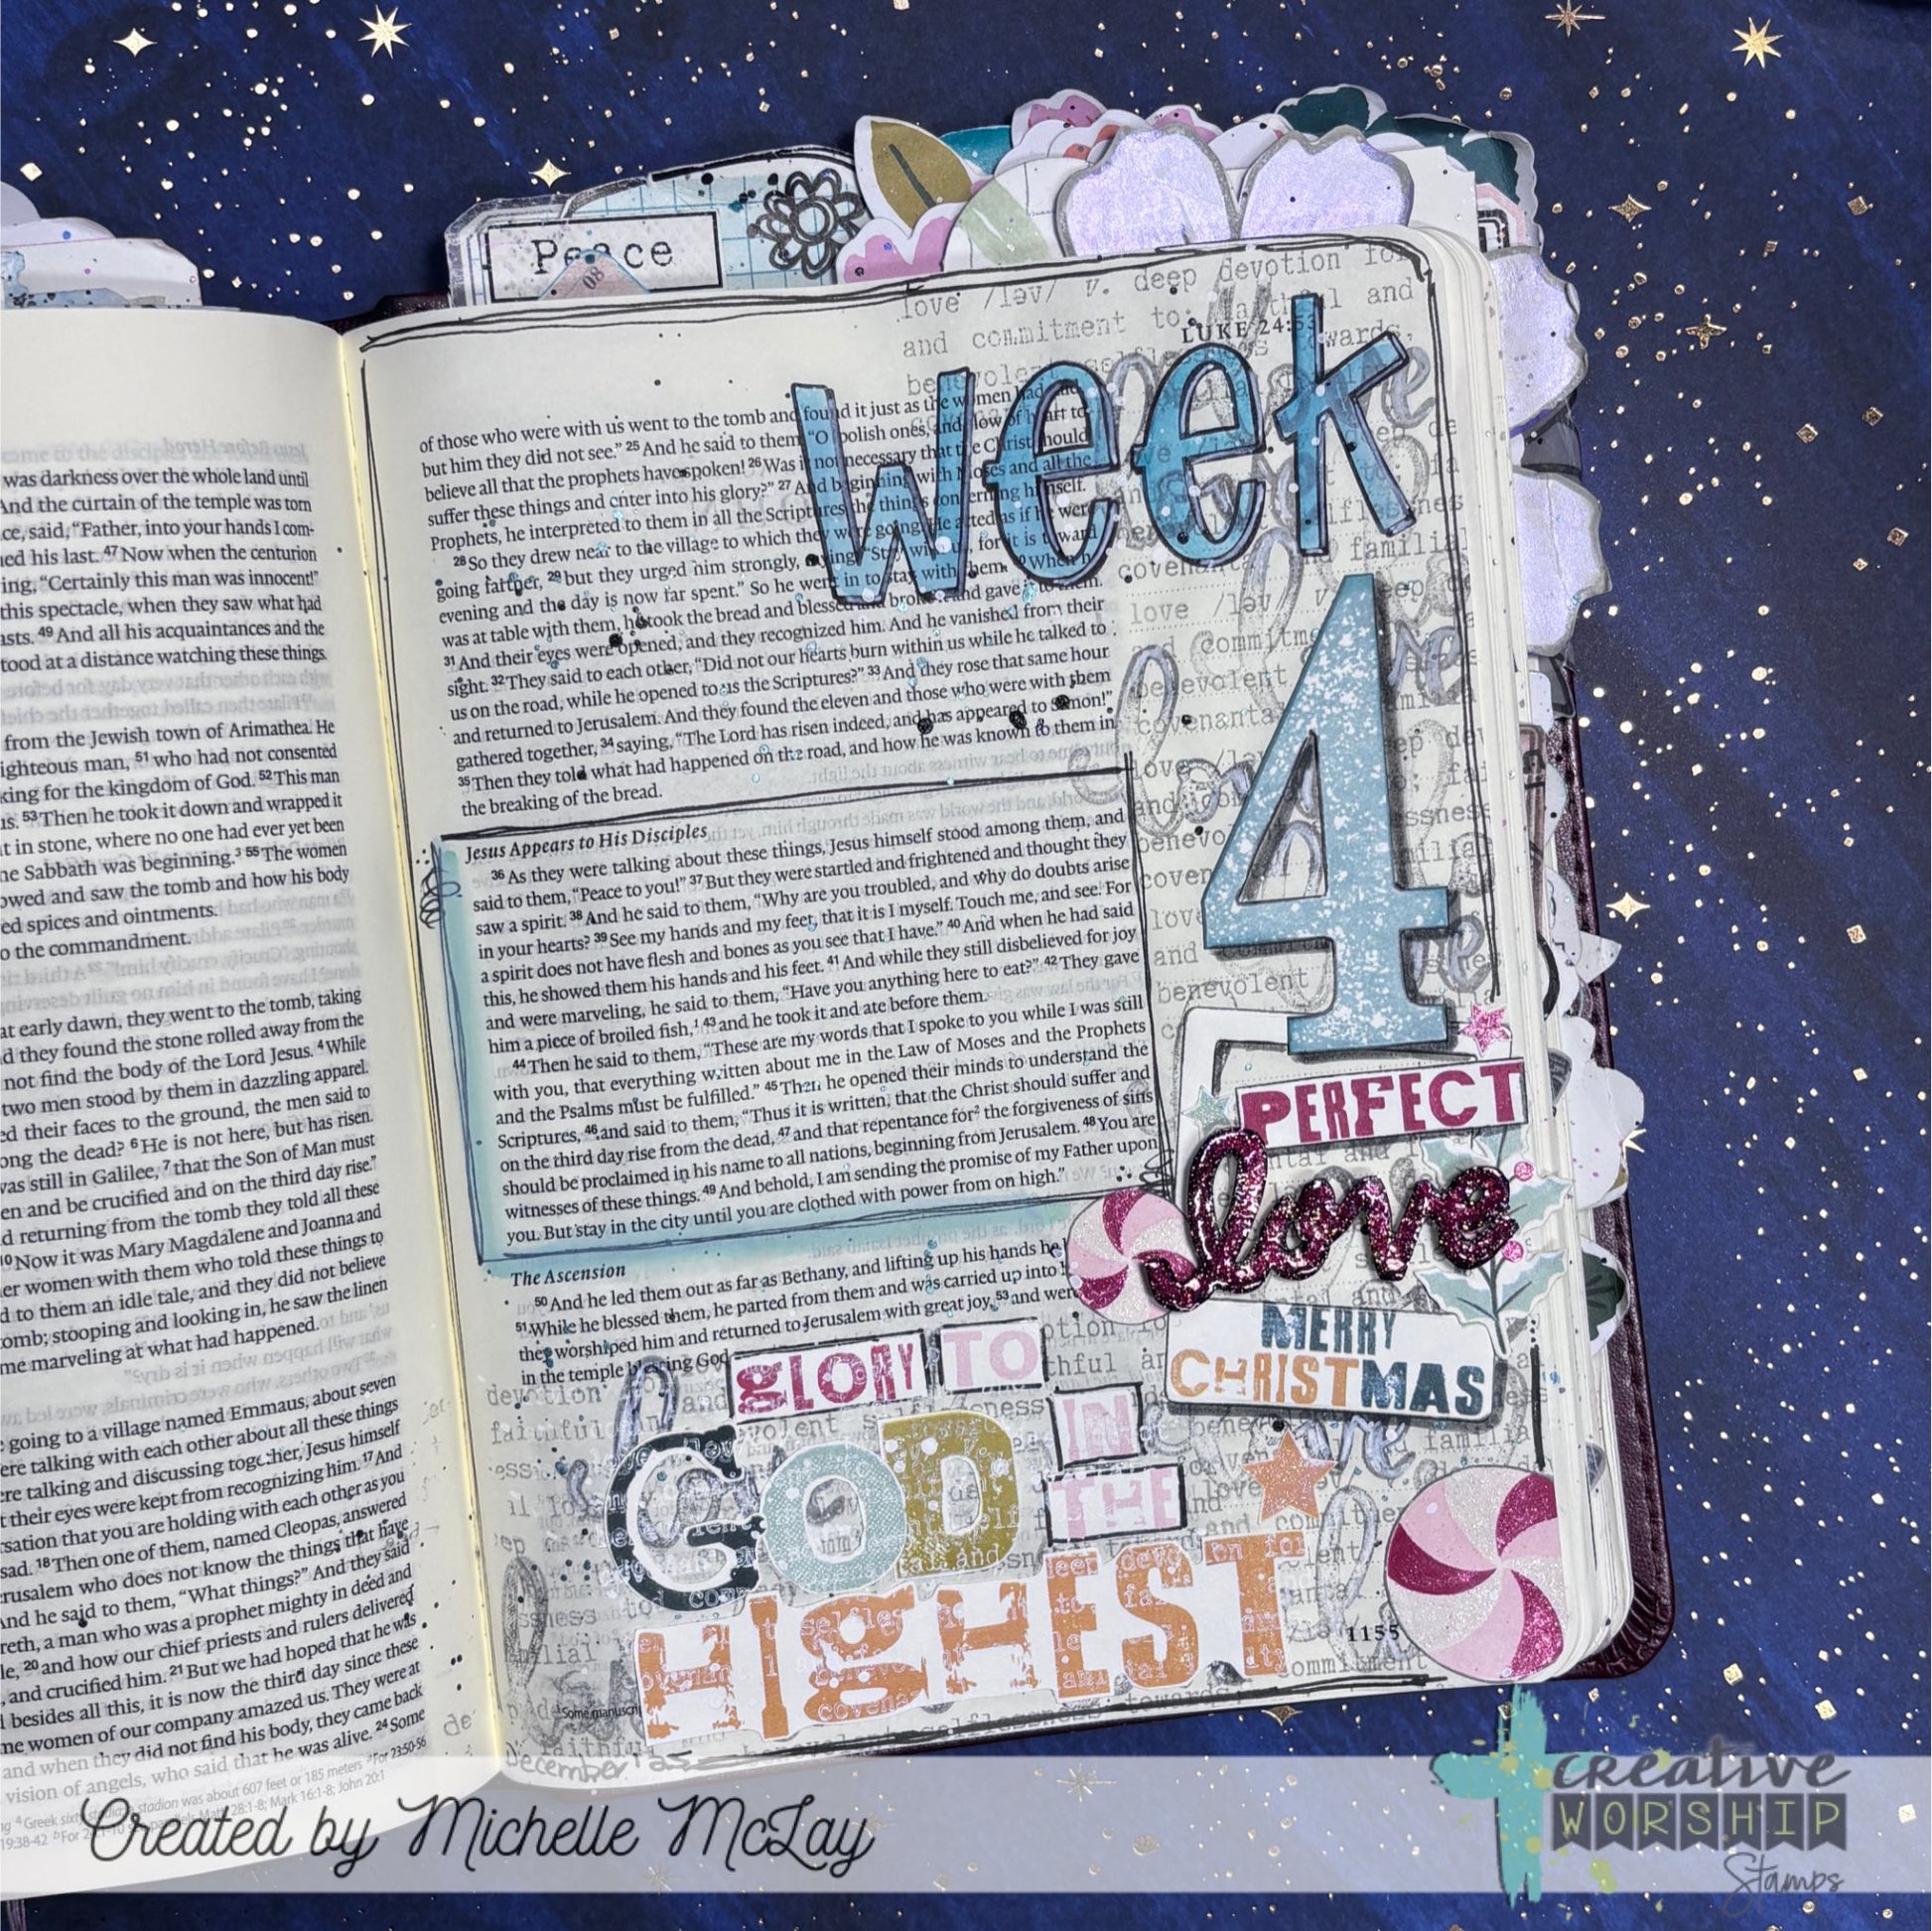 Peace
80
was darkness over the whole land until
And the curtain of the temple was torn
ce, said, “Father, into your hands I com-
ed his last. 47 Now when the centurion
ing, “Certainly this man was innocent!”
this spectacle, when they saw what had
asts. 49 And all his acquaintances and the
tood at a distance watching these things.
from the Jewish town of Arimathea. He
ighteous man, 51 who had not consented
king for the kingdom of God. 52 This man
us. 53 Then he took it down and wrapped it
t in stone, where no one had ever yet been
he Sabbath was beginning.3 55 The women
owed and saw the tomb and how his body
ed spices and ointments.
o the commandment.
at early dawn, they went to the tomb, taking
d they found the stone rolled away from the
not find the body of the Lord Jesus. 4 While
two men stood by them in dazzling apparel.
ed their faces to the ground, the men said to
ong the dead? 6 He is not here, but has risen.
was still in Galilee, 7 that the Son of Man must
en and be crucified and on the third day rise.”
d returning from the tomb they told all these
10 Now it was Mary Magdalene and Joanna and
er women with them who told these things to
d to them an idle tale, and they did not believe
omb; stooping and looking in, he saw the linen
me marveling at what had happened.
going to a village named Emmaus, about seven
ere talking with each other about all these things
ere talking and discussing together, Jesus himself
t their eyes were kept from recognizing him. 17 And
rsation that you are holding with each other as you
sad. 18 Then one of them, named Cleopas, answered
erusalem who does not know the things that have
And he said to them, “What things?” And they said
reth, a man who was a prophet mighty in deed and
le, 20 and how our chief priests and rulers delivered
, and crucified him. 21 But we had hoped that he was
besides all this, it is now the third day since these
me women of our company amazed us. They were at
and when they did not find his body, they came back
vision of angels, who said that he was alive. 24 Some
LUKE 24:53
of those who were with us went to the tomb and found it just as the women had
but him they did not see.” 25 And he said to them, “O foolish ones, and slow of heart to
believe all that the prophets have spoken! 26 Was it not necessary that the Christ should
suffer these things and enter into his glory?” 27 And beginning with Moses and all the
Prophets, he interpreted to them in all the Scriptures the things concerning himself.
28 So they drew near to the village to which they were going. He acted as if he were
going farther, 29 but they urged him strongly, saying, “Stay with us, for it is toward
evening and the day is now far spent.” So he went in to stay with them. 30 When he
was at table with them, he took the bread and blessed and broke it and gave it to them.
31 And their eyes were opened, and they recognized him. And he vanished from their
sight. 32 They said to each other, “Did not our hearts burn within us while he talked to
us on the road, while he opened to us the Scriptures?” 33 And they rose that same hour
and returned to Jerusalem. And they found the eleven and those who were with them
gathered together, 34 saying, “The Lord has risen indeed, and has appeared to Simon!”
35 Then they told what had happened on the road, and how he was known to them in
the breaking of the bread.
Jesus Appears to His Disciples
36 As they were talking about these things, Jesus himself stood among them, and
said to them, “Peace to you!” 37 But they were startled and frightened and thought they
saw a spirit. 38 And he said to them, “Why are you troubled, and why do doubts arise
in your hearts? 39 See my hands and my feet, that it is I myself. Touch me, and see. For
a spirit does not have flesh and bones as you see that I have.” 40 And when he had said
this, he showed them his hands and his feet. 41 And while they still disbelieved for joy
and were marveling, he said to them, “Have you anything here to eat?” 42 They gave
him a piece of broiled fish,1 43 and he took it and ate before them.
44 Then he said to them, “These are my words that I spoke to you while I was still
with you, that everything written about me in the Law of Moses and the Prophets
and the Psalms must be fulfilled.” 45 Then he opened their minds to understand the
Scriptures, 46 and said to them, “Thus it is written, that the Christ should suffer and
on the third day rise from the dead, 47 and that repentance for2 the forgiveness of sins
should be proclaimed in his name to all nations, beginning from Jerusalem. 48 You are
witnesses of these things. 49 And behold, I am sending the promise of my Father upon
you. But stay in the city until you are clothed with power from on high.”
The Ascension
50 And he led them out as far as Bethany, and lifting up his hands he
51 While he blessed them, he parted from them and was carried up into
they worshiped him and returned to Jerusalem with great joy, 53 and were
in the temple blessing God
week
4
PERFECT
love
MERRY
CHRISTMAS
GLORY TO
GOD IN
THE
HIGHEST
1155
December
Created by Michelle McLay
creative
WORSHIP
Stamps